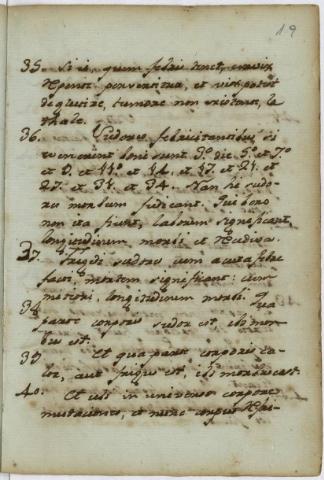 19
35. Si is, quem febris tenet, cervix
repente pervertitur, et vix potest
deglutire, tumore non existente, le
thale.
36. Sudores febricitantibus si
venerint boni sunt 3º die 5º et 7º
et 9. et 11º et 14. et 17. et 21. et
27. et 31. et 34. Nam hi sudo
res morbum judicant. Qui vero
non ita fiunt, laborem significant,
longitudinem morbi et recidiva.
37. Frigidi sudores cum acuta febre
facti, mortem significant: cum
mitiori, longitudinem morbi.
38. Qua
parte corporis sudor est, ibi mor
bus est.
39. Et qua parte corporis ca-
lor, aut frigus est, ibi morbus est.
40. Et ubi in universo corpore
mutationes, et corpus refri-